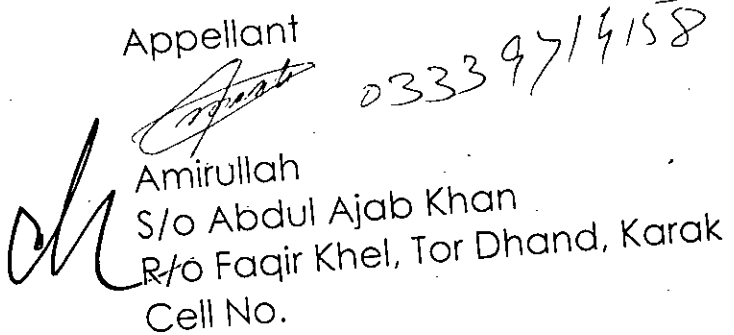 Appellant
03339714158
Amirullah
S/o Abdul Ajab Khan
R/o Faqir Khel, Tor Dhand, Karak
Cell No.